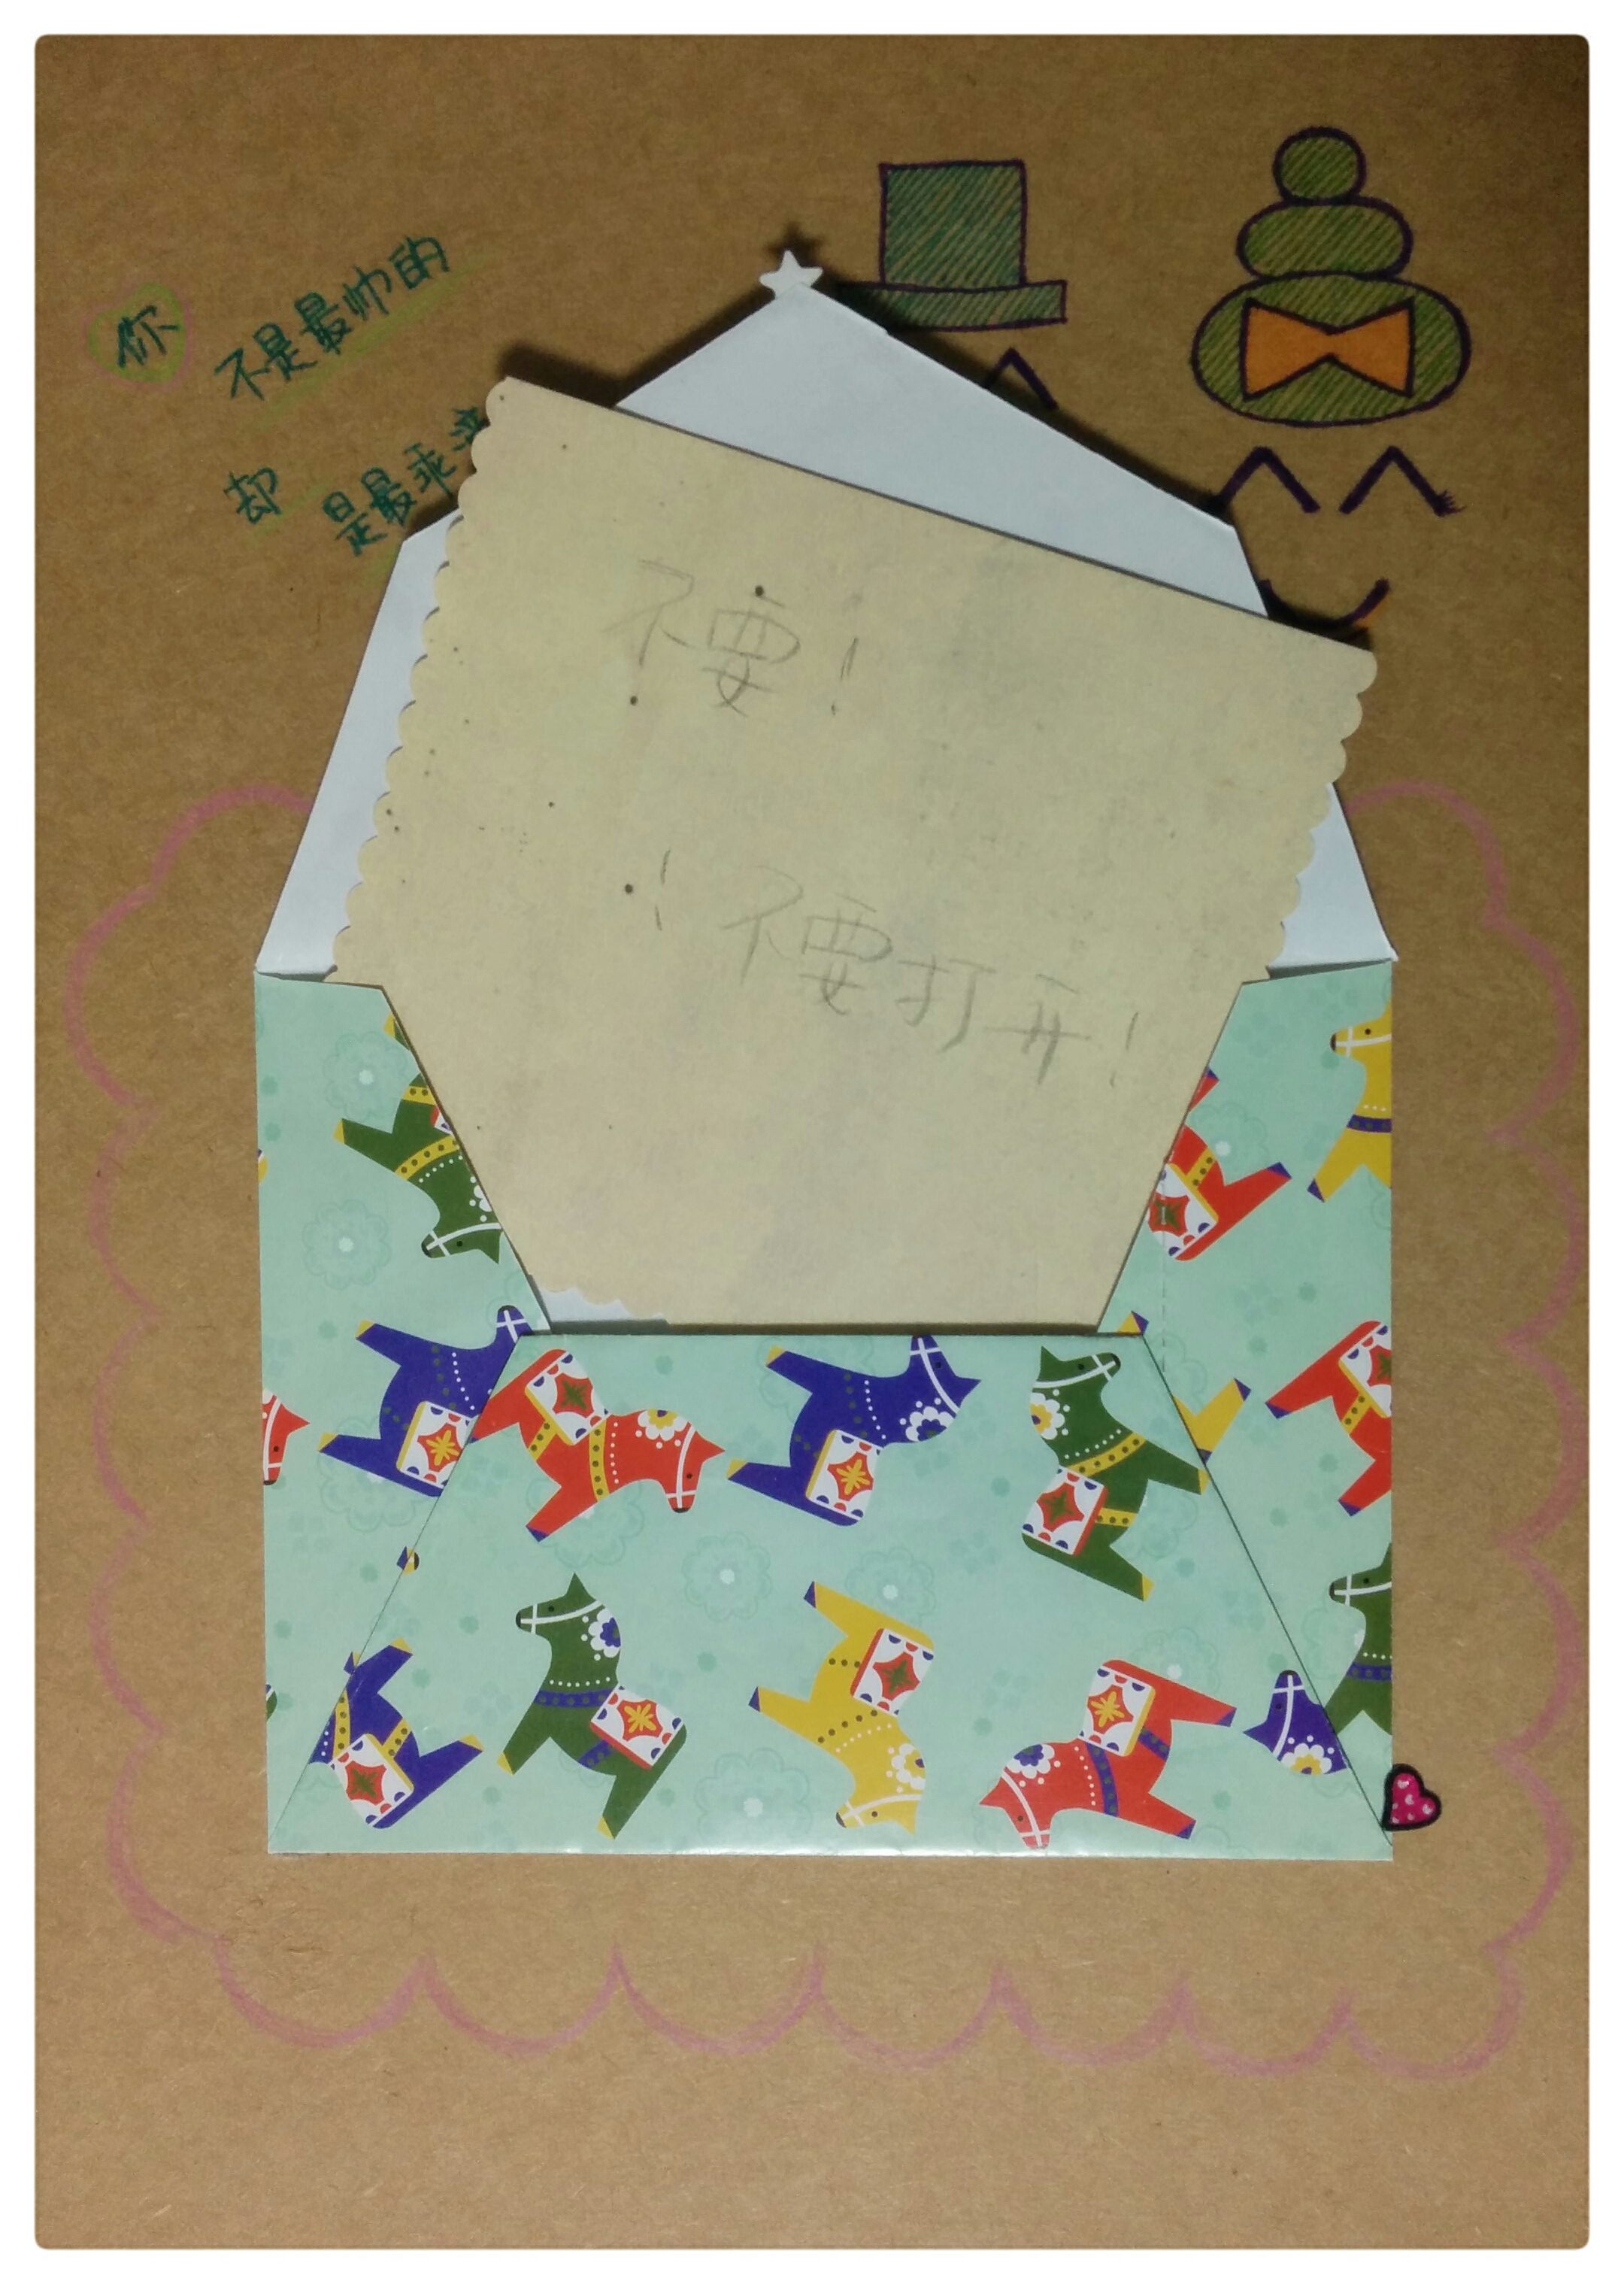 你
不是最帅的
却
是最乖
不要!
! 不要打开!